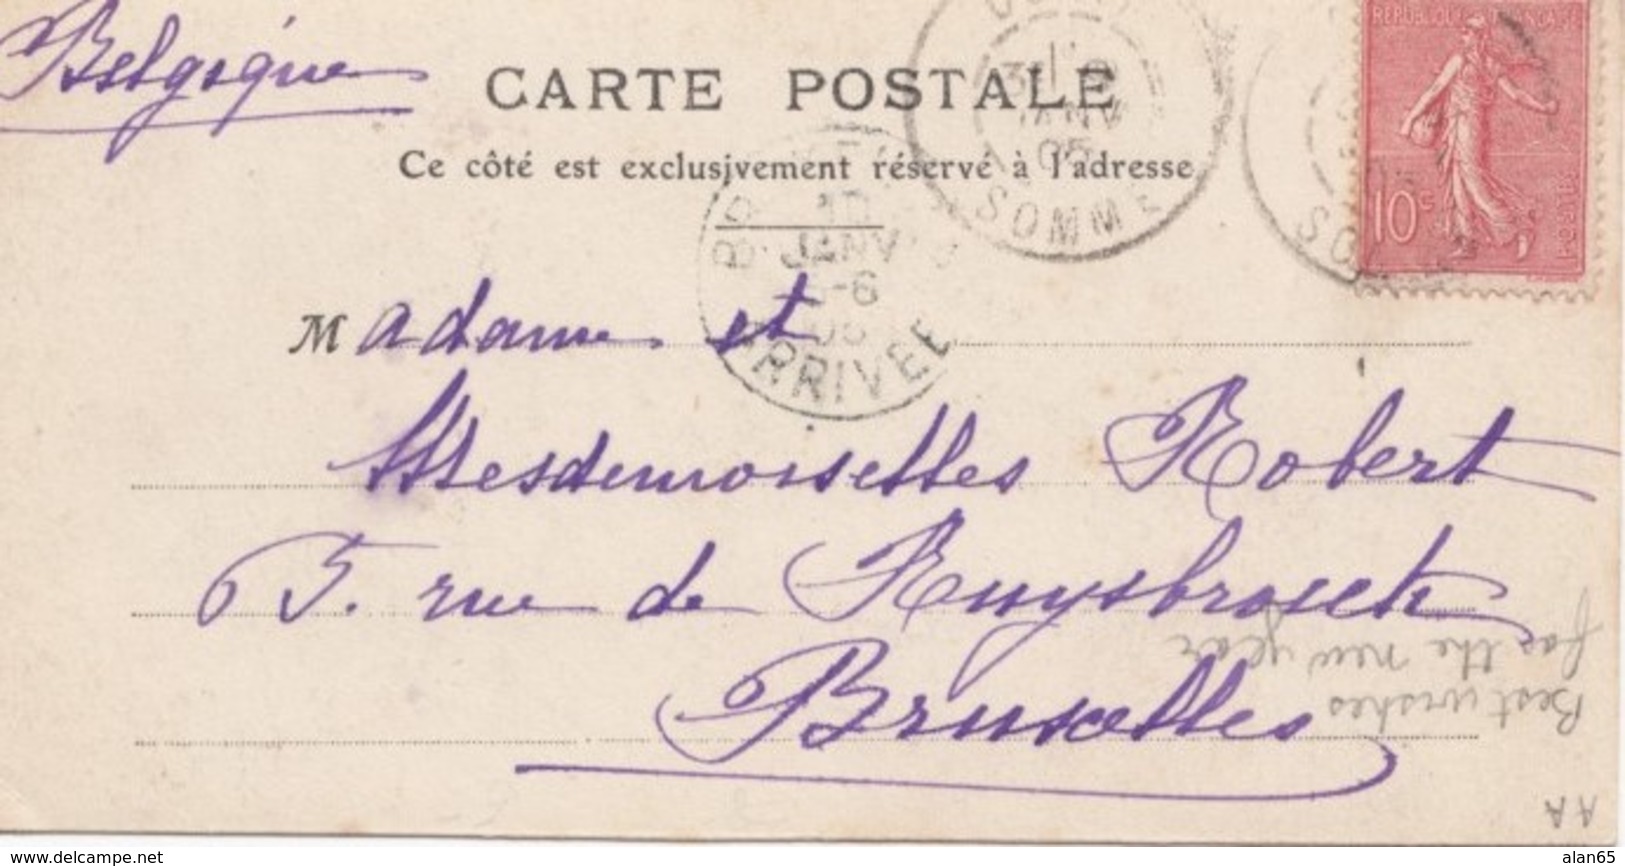 Belgique
CARTE POSTALE
Ce côté est exclusivement réservé à l'adresse
JANV
05
SOMME
RÉPUBLIQUE FRANÇAISE
10c
POSTES
JANV
5-6
ARRIVEE
Madame et
Mesdemoiselles Robert
5. rue de Ruysbroeck
Bruxelles
Best wishes
for the new year
AA
www.delcampe.net
alan65